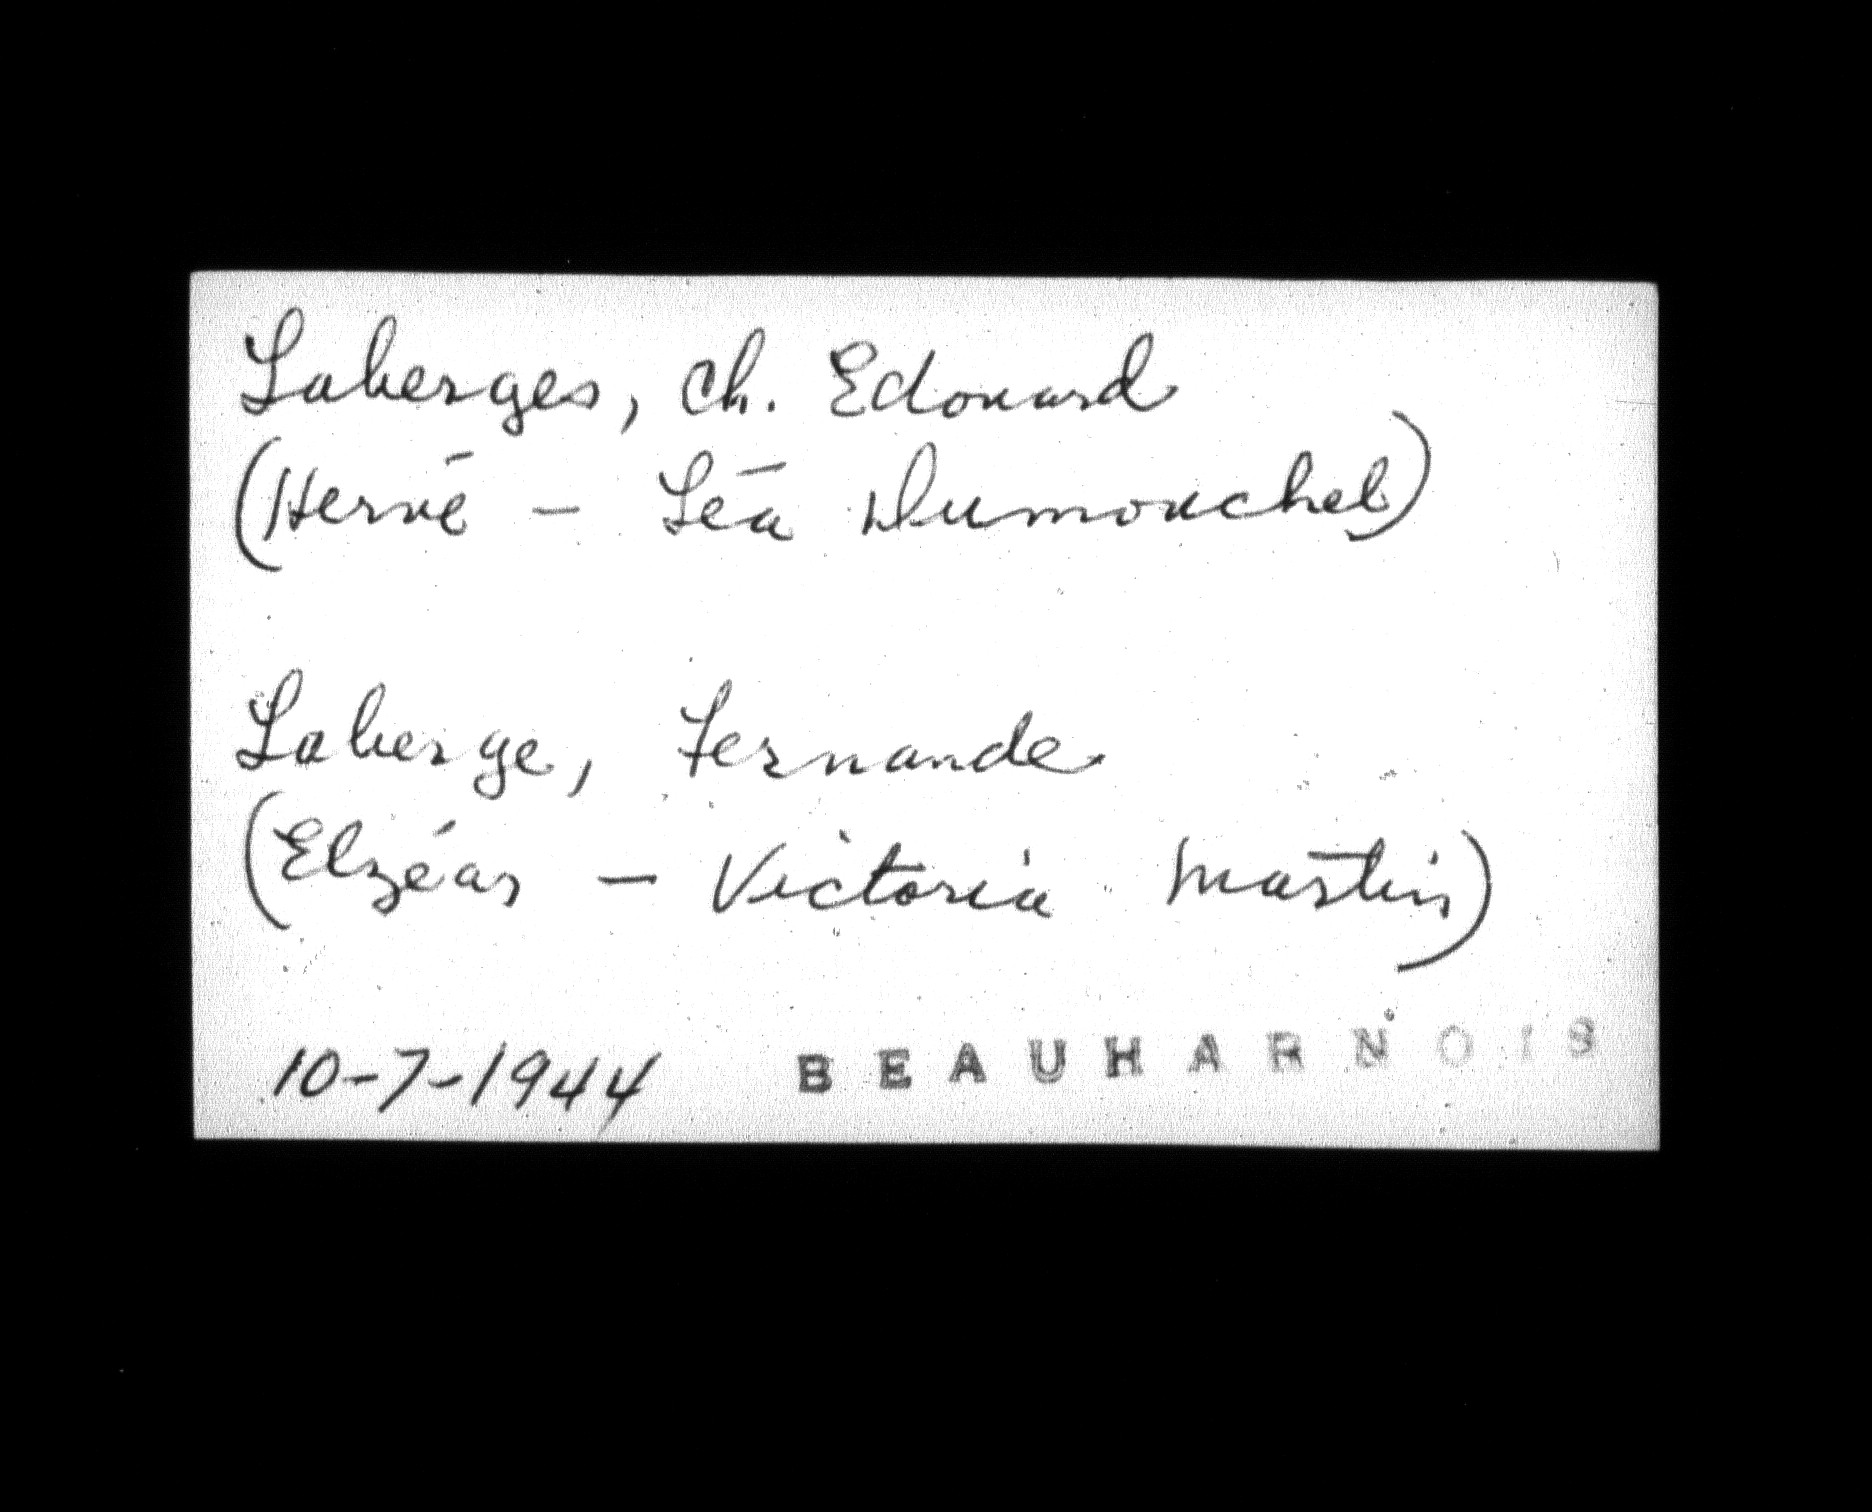 Laberges, Ch. Edouard
(Hervé - Léa Dumouchel)
Laberge, Fernande
(Elzéar - Victoria Martin)
10-7-1944 BEAUHARNOIS